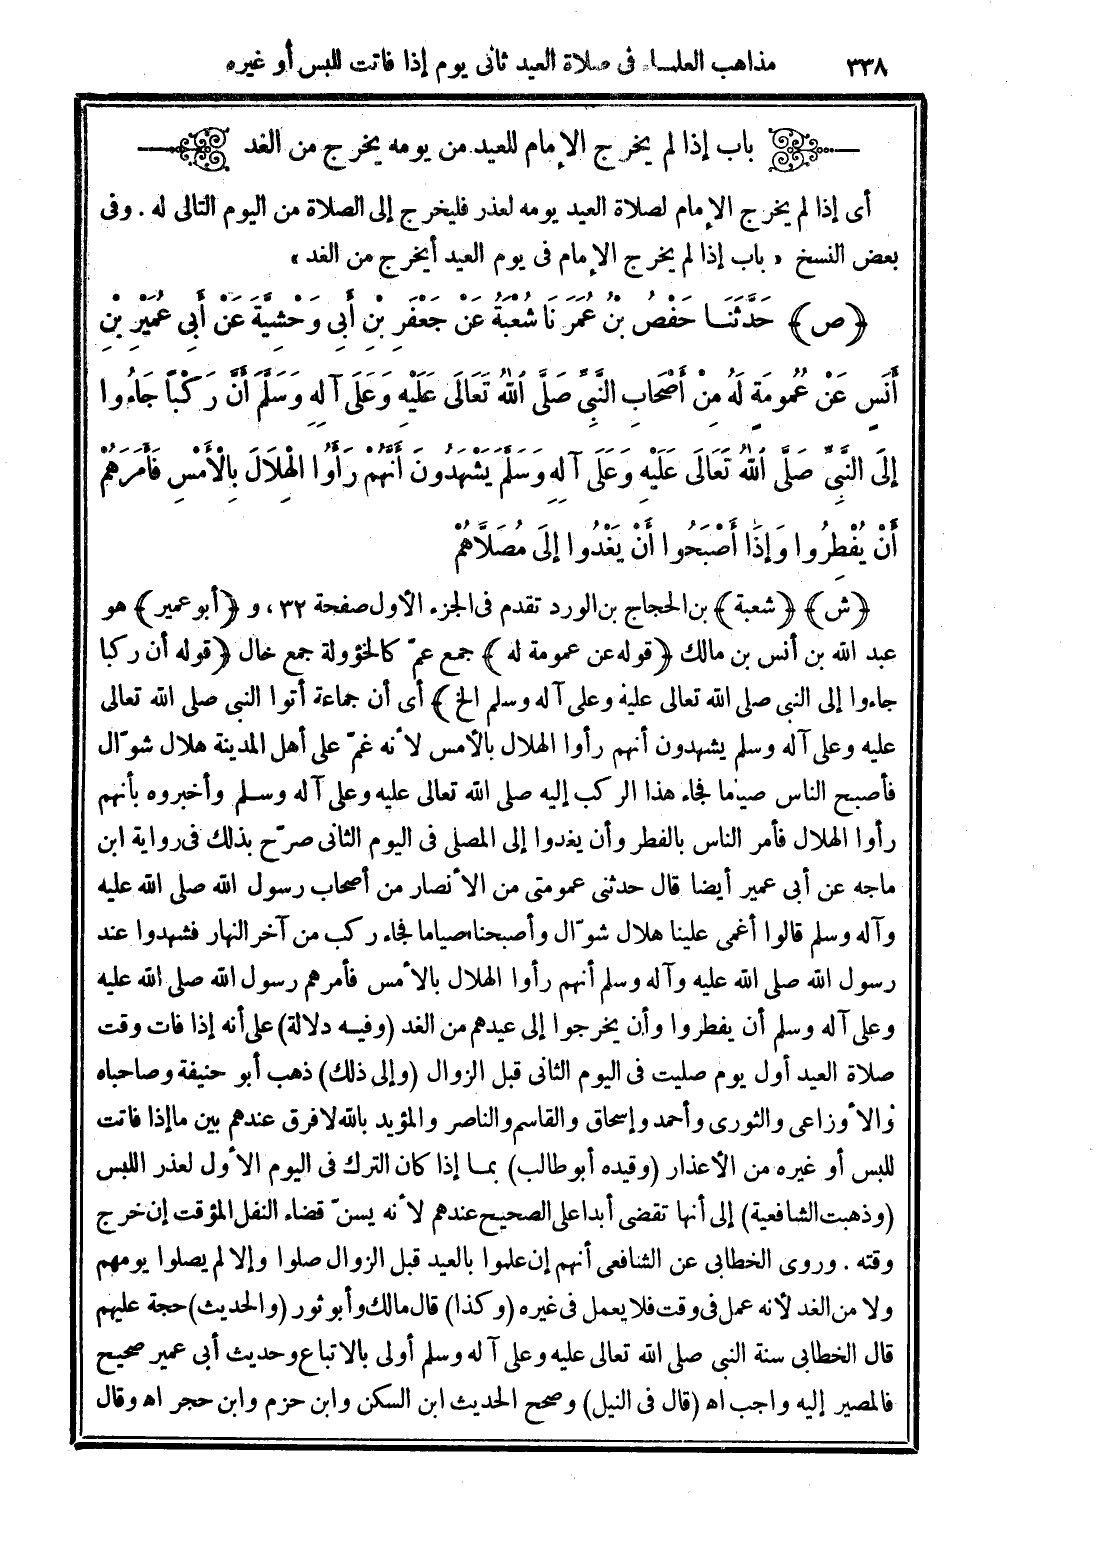 ٣٣٨ مذاهب العلماء فى صلاة العيد ثانى يوم إذا فاتت للبس أو غيره
باب إذا لم يخرج الإمام للعيد من يومه يخرج من الغد
أى إذا لم يخرج الإمام لصلاة العيد يومه لعذر فليخرج إلى الصلاة من اليوم التالى له . وفى
بعض النسخ « باب إذا لم يخرج الإمام فى يوم العيد أيخرج من الغد »
﴿ص﴾ حَدَّثَنَا حَفْصُ بْنُ عُمَرَ نَا شُعْبَةُ عَنْ جَعْفَرِ بْنِ أَبِى وَحْشِيَّةَ عَنْ أَبِى عُمَيْرِ بْنِ
أَنَسٍ عَنْ عُمُومَةٍ لَهُ مِنْ أَصْحَابِ النَّبِىِّ صَلَّى اللهُ تَعَالَى عَلَيْهِ وَعَلَى آلِهِ وَسَلَّمَ أَنَّ رَكْبًا جَاءُوا
إِلَى النَّبِىِّ صَلَّى اللهُ تَعَالَى عَلَيْهِ وَعَلَى آلِهِ وَسَلَّمَ يَشْهَدُونَ أَنَّهُمْ رَأَوُا الْهِلَالَ بِالْأَمْسِ فَأَمَرَهُمْ
أَنْ يُفْطِرُوا وَإِذَا أَصْبَحُوا أَنْ يَغْدُوا إِلَى مُصَلَّاهُمْ
﴿ش﴾ ﴿شعبة﴾ بن الحجاج بن الورد تقدم فى الجزء الأول صفحة ٣٢، و ﴿أبو عمير﴾ هو
عبد الله بن أنس بن مالك ﴿قوله عن عمومة له﴾ جمع عمّ كالخؤولة جمع خال ﴿قوله أن ركبا
جاءوا إلى النبى صلى الله تعالى عليه وعلى آله وسلم الخ﴾ أى أن جماعة أتوا النبى صلى الله تعالى
عليه وعلى آله وسلم يشهدون أنهم رأوا الهلال بالأمس لأنه غمّ على أهل المدينة هلال شوّال
فأصبح الناس صياما فجاء هذا الركب إليه صلى الله تعالى عليه وعلى آله وسلم وأخبروه بأنهم
رأوا الهلال فأمر الناس بالفطر وأن يغدوا إلى المصلى فى اليوم الثانى صرّح بذلك فى رواية ابن
ماجه عن أبى عمير أيضا قال حدثنى عمومتى من الأنصار من أصحاب رسول الله صلى الله عليه
وآله وسلم قالوا أغمى علينا هلال شوّال وأصبحنا صياما فجاء ركب من آخر النهار فشهدوا عند
رسول الله صلى الله عليه وآله وسلم أنهم رأوا الهلال بالأمس فأمرهم رسول الله صلى الله عليه
وعلى آله وسلم أن يفطروا وأن يخرجوا إلى عيدهم من الغد (وفيه دلالة) على أنه إذا فات وقت
صلاة العيد أول يوم صليت فى اليوم الثانى قبل الزوال (وإلى ذلك) ذهب أبو حنيفة وصاحباه
والأوزاعى والثورى وأحمد وإسحاق والقاسم والناصر والمؤيد بالله لا فرق عندهم بين ما إذا فاتت
للبس أو غيره من الأعذار (وقيده أبو طالب) بما إذا كان الترك فى اليوم الأول لعذر اللبس
(وذهبت الشافعية) إلى أنها تقضى أبدا على الصحيح عندهم لأنه يسنّ قضاء النفل المؤقت إن خرج
وقته . وروى الخطابى عن الشافعى أنهم إن علموا بالعيد قبل الزوال صلوا وإلا لم يصلوا يومهم
ولا من الغد لأنه عمل فى وقت فلا يعمل فى غيره (وكذا) قال مالك وأبو ثور (والحديث) حجة عليهم
قال الخطابى سنة النبى صلى الله تعالى عليه وعلى آله وسلم أولى بالاتباع وحديث أبى عمير صحيح
فالمصير إليه واجب اه (قال فى النيل) وصحح الحديث ابن السكن وابن حزم وابن حجر اه وقال